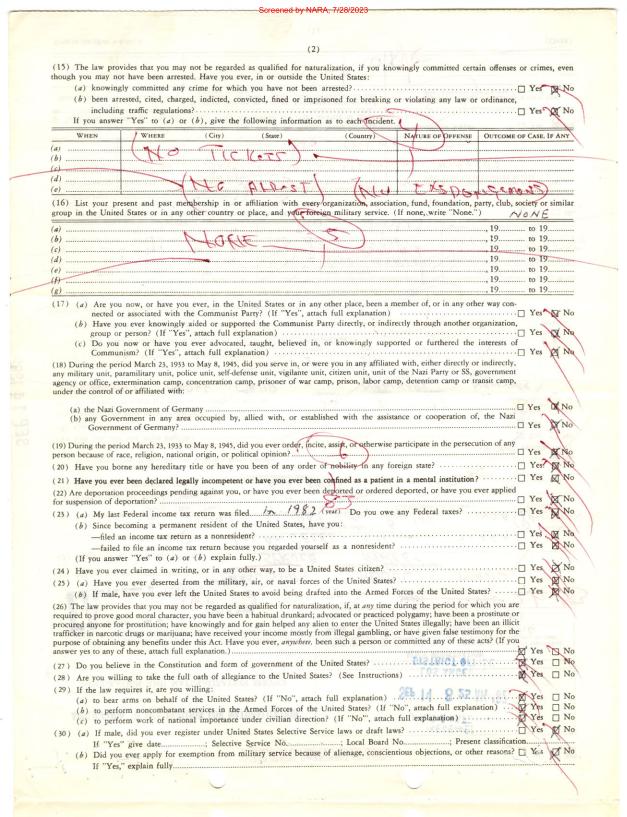 Screened by NARA, 7/28/2023
(2)
(15) The law provides that you may not be regarded as qualified for naturalization, if you knowingly committed certain offenses or crimes, even
though you may not have been arrested. Have you ever, in or outside the United States:
(a) knowingly committed any crime for which you have not been arrested? ☐ Yes ☒ No
(b) been arrested, cited, charged, indicted, convicted, fined or imprisoned for breaking or violating any law or ordinance,
including traffic regulations? ☐ Yes ☒ No
If you answer "Yes" to (a) or (b), give the following information as to each incident.
WHEN WHERE (City) (State) (Country) NATURE OF OFFENSE OUTCOME OF CASE, IF ANY
(a)
(b) (NO TICKETS)
(c)
(d)
(e) (NO ARREST) (NO EXSPONGEMENS)
(16) List your present and past membership in or affiliation with every organization, association, fund, foundation, party, club, society or similar
group in the United States or in any other country or place, and your foreign military service. (If none, write "None.") NONE
(a) , 19 to 19
(b) NONE 5 , 19 to 19
(c) , 19 to 19
(d) , 19 to 19
(e) , 19 to 19
(f) , 19 to 19
(g) , 19 to 19
(17) (a) Are you now, or have you ever, in the United States or in any other place, been a member of, or in any other way con-
nected or associated with the Communist Party? (If "Yes", attach full explanation) ☐ Yes ☒ No
(b) Have you ever knowingly aided or supported the Communist Party directly, or indirectly through another organization,
group or person? (If "Yes", attach full explanation) ☐ Yes ☒ No
(c) Do you now or have you ever advocated, taught, believed in, or knowingly supported or furthered the interests of
Communism? (If "Yes", attach full explanation) ☐ Yes ☒ No
(18) During the period March 23, 1933 to May 8, 1945, did you serve in, or were you in any affiliated with, either directly or indirectly,
any military unit, paramilitary unit, police unit, self-defense unit, vigilante unit, citizen unit, unit of the Nazi Party or SS, government
agency or office, extermination camp, concentration camp, prisoner of war camp, prison, labor camp, detention camp or transit camp,
under the control of or affiliated with:
(a) the Nazi Government of Germany ☐ Yes ☒ No
(b) any Government in any area occupied by, allied with, or established with the assistance or cooperation of, the Nazi
Government of Germany? ☐ Yes ☒ No
(19) During the period March 23, 1933 to May 8, 1945, did you ever order, incite, assist, or otherwise participate in the persecution of any
person because of race, religion, national origin, or political opinion? 6 ☐ Yes ☒ No
(20) Have you borne any hereditary title or have you been of any order of nobility in any foreign state? ☐ Yes ☒ No
(21) Have you ever been declared legally incompetent or have you ever been confined as a patient in a mental institution? ☐ Yes ☒ No
(22) Are deportation proceedings pending against you, or have you ever been deported or ordered deported, or have you ever applied
for suspension of deportation? ☐ Yes ☒ No
(23) (a) My last Federal income tax return was filed in 1982 (year) Do you owe any Federal taxes? ☐ Yes ☒ No
(b) Since becoming a permanent resident of the United States, have you:
—filed an income tax return as a nonresident? ☐ Yes ☒ No
—failed to file an income tax return because you regarded yourself as a nonresident? ☐ Yes ☒ No
(If you answer "Yes" to (a) or (b) explain fully.)
(24) Have you ever claimed in writing, or in any other way, to be a United States citizen? ☐ Yes ☒ No
(25) (a) Have you ever deserted from the military, air, or naval forces of the United States? ☐ Yes ☒ No
(b) If male, have you ever left the United States to avoid being drafted into the Armed Forces of the United States? ☐ Yes ☒ No
(26) The law provides that you may not be regarded as qualified for naturalization, if, at any time during the period for which you are
required to prove good moral character, you have been a habitual drunkard; advocated or practiced polygamy; have been a prostitute or
procured anyone for prostitution; have knowingly and for gain helped any alien to enter the United States illegally; have been an illicit
trafficker in narcotic drugs or marijuana; have received your income mostly from illegal gambling, or have given false testimony for the
purpose of obtaining any benefits under this Act. Have you ever, anywhere, been such a person or committed any of these acts? (If you
answer yes to any of these, attach full explanation.) ☒ Yes ☐ No
(27) Do you believe in the Constitution and form of government of the United States? ☒ Yes ☐ No
(28) Are you willing to take the full oath of allegiance to the United States? (See Instructions) ☒ Yes ☐ No
(29) If the law requires it, are you willing:
(a) to bear arms on behalf of the United States? (If "No", attach full explanation) ☒ Yes ☐ No
(b) to perform noncombatant services in the Armed Forces of the United States? (If "No", attach full explanation) ☒ Yes ☐ No
(c) to perform work of national importance under civilian direction? (If "No", attach full explanation) ☒ Yes ☐ No
(30) (a) If male, did you ever register under United States Selective Service laws or draft laws? ☐ Yes ☒ No
If "Yes" give date ; Selective Service No. ; Local Board No. ; Present classification
(b) Did you ever apply for exemption from military service because of alienage, conscientious objections, or other reasons? ☐ Yes ☒ No
If "Yes," explain fully